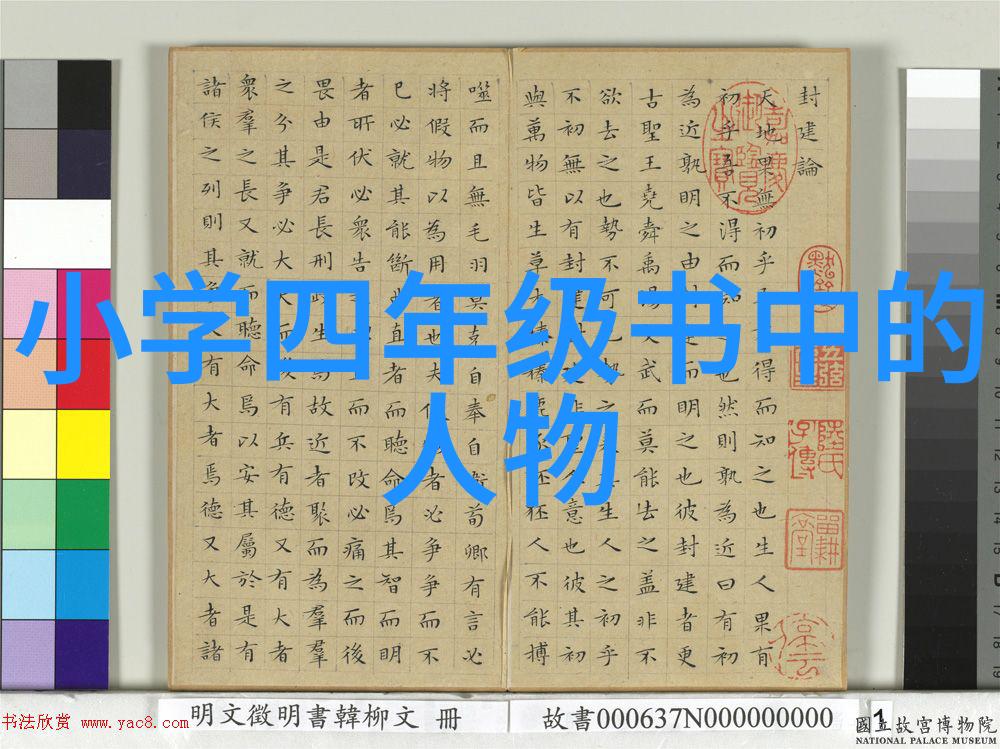 小学四年级书中的
人物
封建論
天地果無初乎得而知之也生人果有
初乎吾不得而知之也然則孰為近曰有初
為近孰明之由封建而明之也彼封建者更
古聖王堯舜禹湯文武而莫能去之蓋非不
欲去之也勢不可也勢之生人之初乎
不初無以有封建非聖人意也彼其初
與萬物皆生草木榛榛鹿豕狉狉人不能搏
噬而且無毛羽莫克自奉自衛荀卿有言必
將假物以為用者也夫假物者必爭爭而不
已必就其能斷曲直者而聽命焉其智而明
者所伏必衆告而不改必痛之而後
畏由是君長刑政生焉故近者聚而為羣
之分其爭必大大而後有兵有德又有大者
衆羣之長又就而聽命焉以安其屬於是有
諸侯之列則其爭又有大者焉德又大者諸
嘉慶御覽之寶
明文徵明書韓柳文 冊
故書000637N000000000
1
书法欣赏 www.yac8.com
國立故宮博物院
NATIONAL PALACE MUSEUM